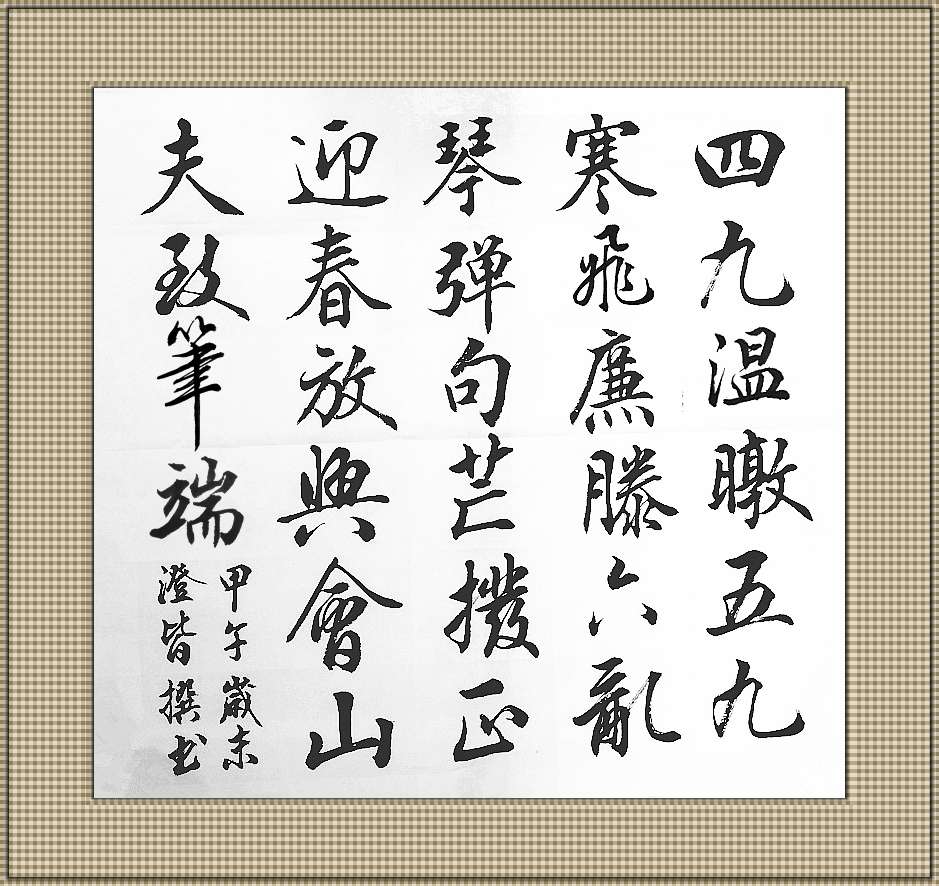 四九温暾五九
寒飛廉滕六亂
琴弹句芒撥正
迎春放興會山
夫致筆端
甲午歲末
澄皆撰书